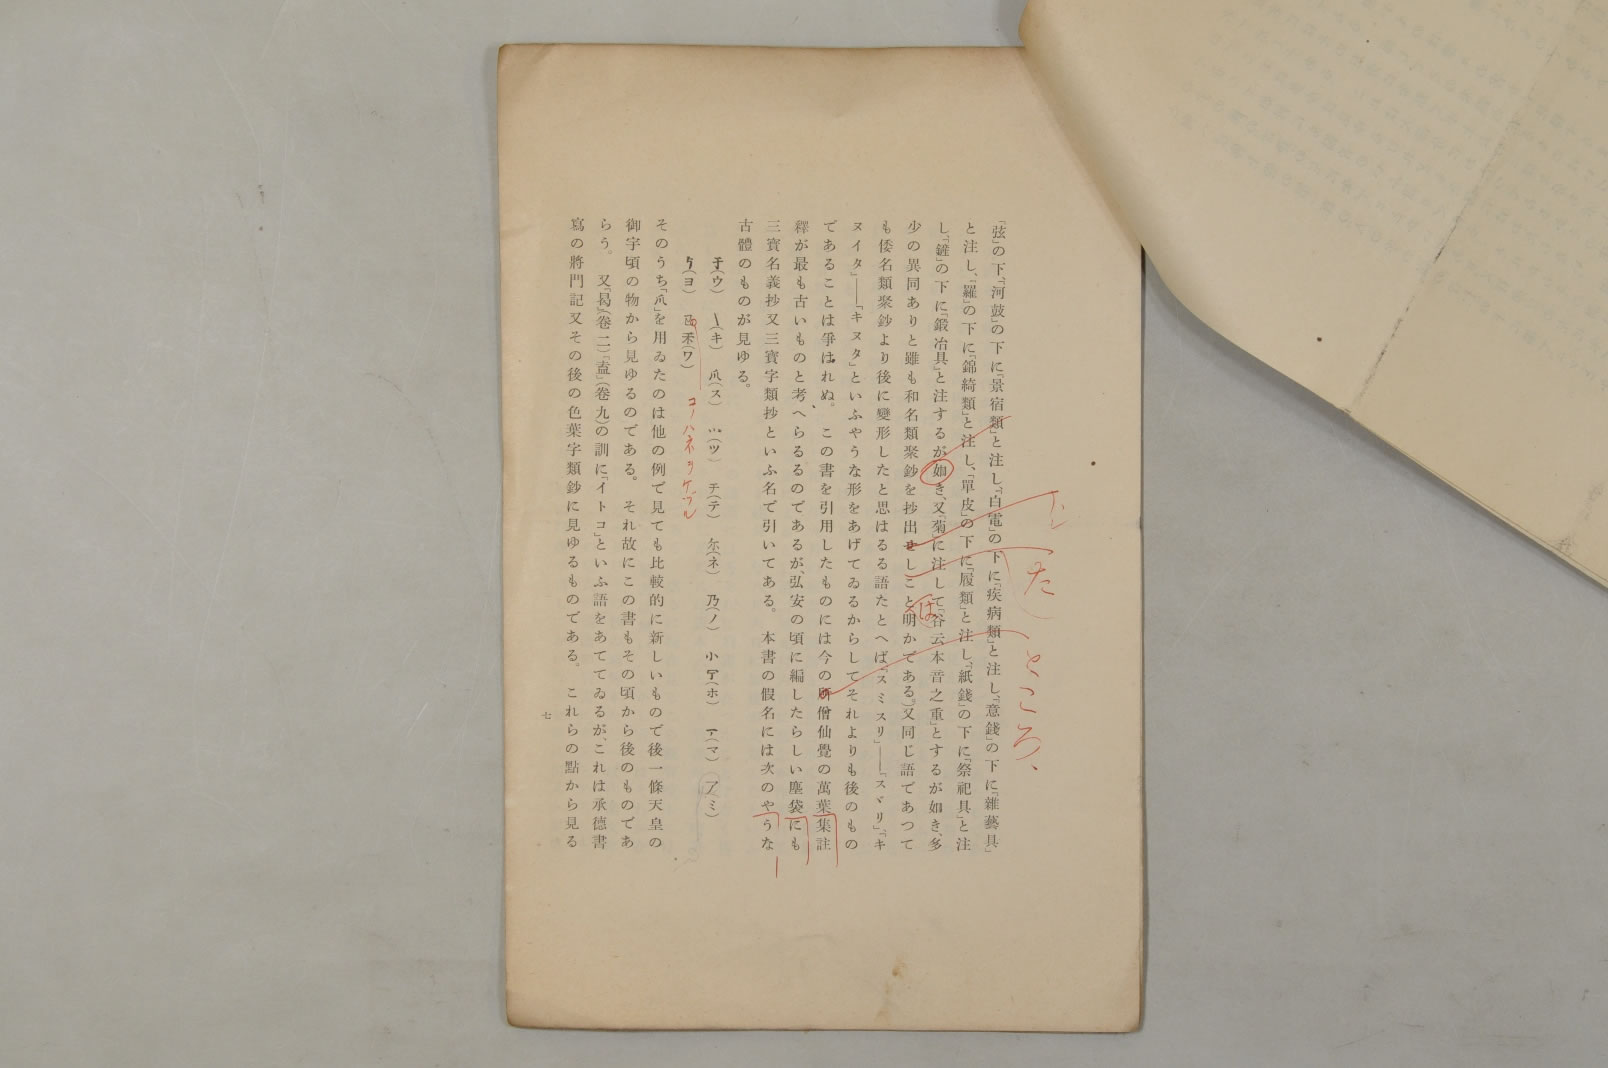 「弦」の下、「河鼓」の下に「景宿類」と注し、「白電」の下に「疾病類」と注し、「意錢」の下に「雜藝具」
と注し、「羅」の下に「錦綺類」と注し、「單皮」の下に「履類」と注し、「紙錢」の下に「祭祀具」と注
し、「鏟」の下に「鍛冶具」と注するが如き、又「菊」に注して「谷云本音之重」とするが如き、多
少の異同ありと雖も和名類聚鈔を抄出せしこと明かである。)又同じ語であつて
も倭名類聚鈔より後に變形したと思はるる語たとへば「スミスリ」――「スヾリ」「キ
ヌイタ」――「キヌタ」といふやうな形をあげてゐるからしてそれよりも後のもの
であることは爭はれぬ。この書を引用したものには今の所僧仙覺の萬葉集註
釋が最も古いものと考へらるるのであるが、弘安の頃に編したらしい塵袋にも
三寶名義抄又三寶字類抄といふ名で引いてある。本書の假名には次のやうな
古體のものが見ゆる。
(ウ) (キ) 爪(ス) (ツ) チ(テ) (ネ) 乃(ノ) 小 (ホ) (マ) (ミ)
(ヨ) (ワ)
そのうち「爪」を用ゐたのは他の例で見ても比較的に新しいもので後一條天皇の
御宇頃の物から見ゆるのである。それ故にこの書もその頃から後のものであ
らう。又「曷」(卷二)「盍」(卷九)の訓に「イトコ」といふ語をあててゐるが、これは承德書
寫の將門記又その後の色葉字類鈔に見ゆるものである。これらの點から見る
七
た
ほ
ところ、
コノハネヲケヅル